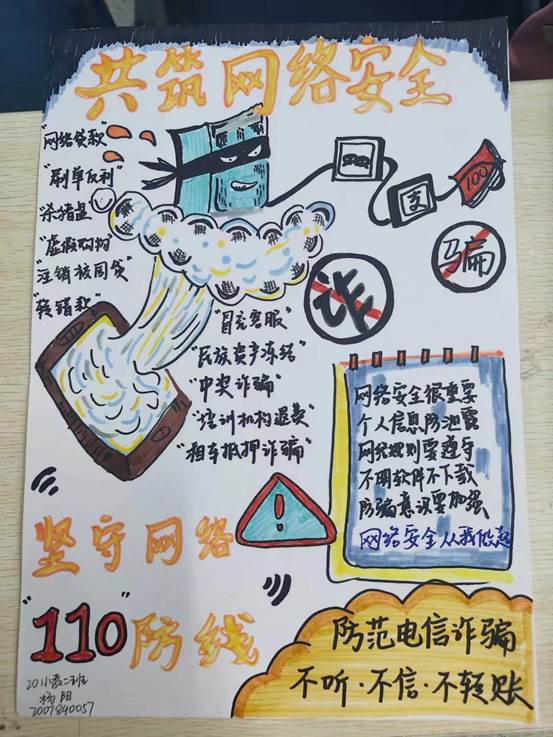 共筑网络安全
"网络贷款"
"刷单返利"
"杀猪盘"
"虚假购物"
"注销校园贷"
"转错款"
100
支
骗
诈
"冒充客服"
"民族资产冻结"
"中奖诈骗"
"培训机构退费"
"租车抵押诈骗"
网络安全很重要
个人信息防泄露
网络规则要遵守
不明软件不下载
防骗意识要加强
网络安全从我做起
!
坚守网络
"110"防线
防范电信诈骗
不听·不信·不轻账
20小教二班
杨阳
2007840057